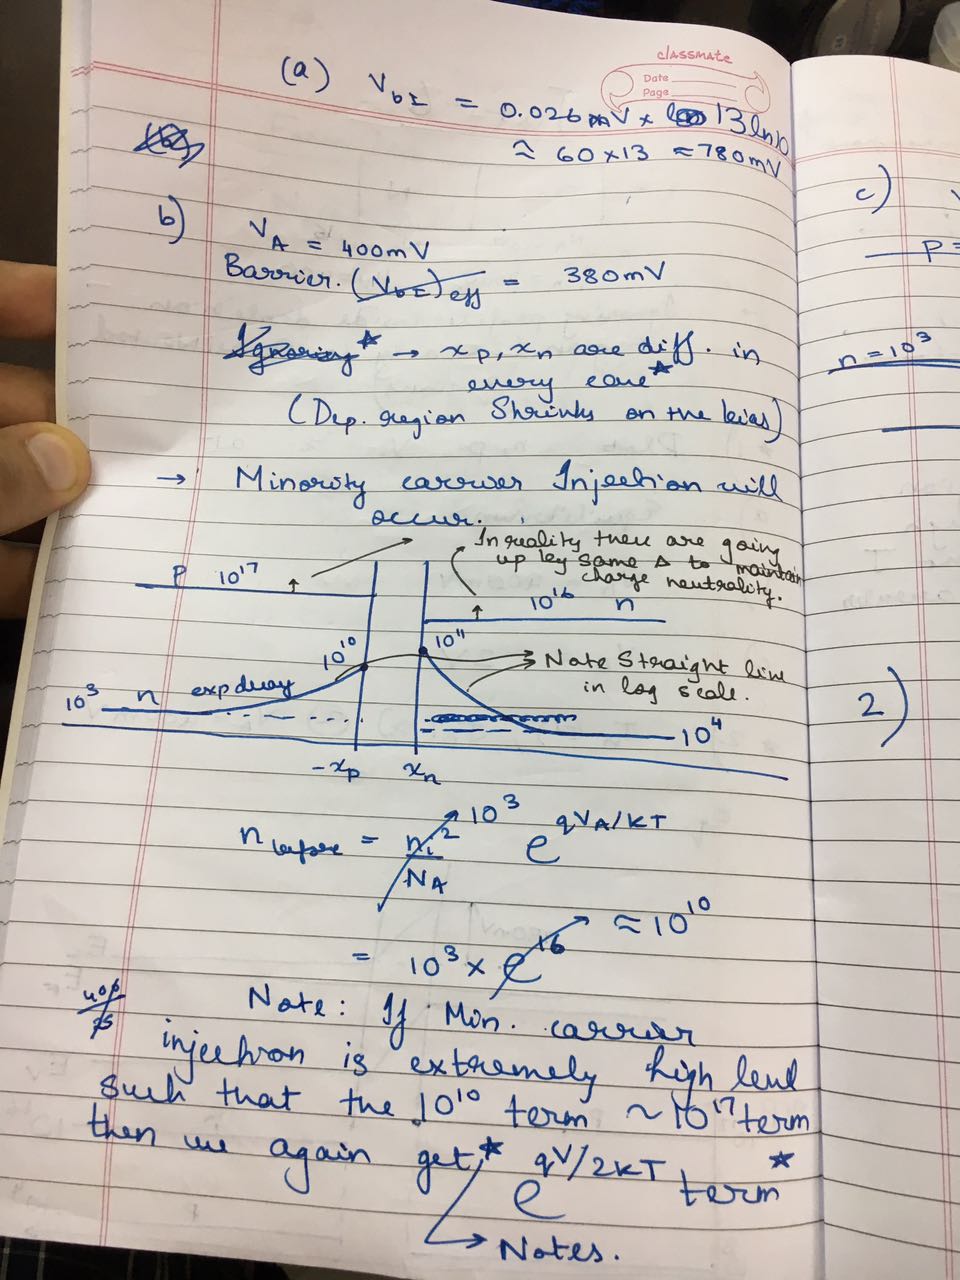 classmate
Date
Page
(a) VbI = 0.026mV x 13ln10
≈ 60x13 ≈ 780mV
b) VA = 400mV
Barrier. (VbI)eff = 380mV
Ignoring* → xp, xn are diff. in
every case*
(Dep. region Shrinks on the bias)
→ Minority carrier Injection will
occur.
In reality these are going
up by same Δ to maintain
charge neutrality.
P 10^17
10^16 n
10^10
10^11
Note Straight line
in log scale.
10^3 n exp decay
10^4
-xp xn
n before = ni^2/NA 10^3 e^qVA/KT
= 10^3 x e^16 ≈ 10^10
400/25
Note: If Min. carrier
injection is extremely high level
such that the 10^10 term ~ 10^17 term
then we again get * e^qV/2KT term *
→ Notes.
c)
P =
n = 10^3
2)